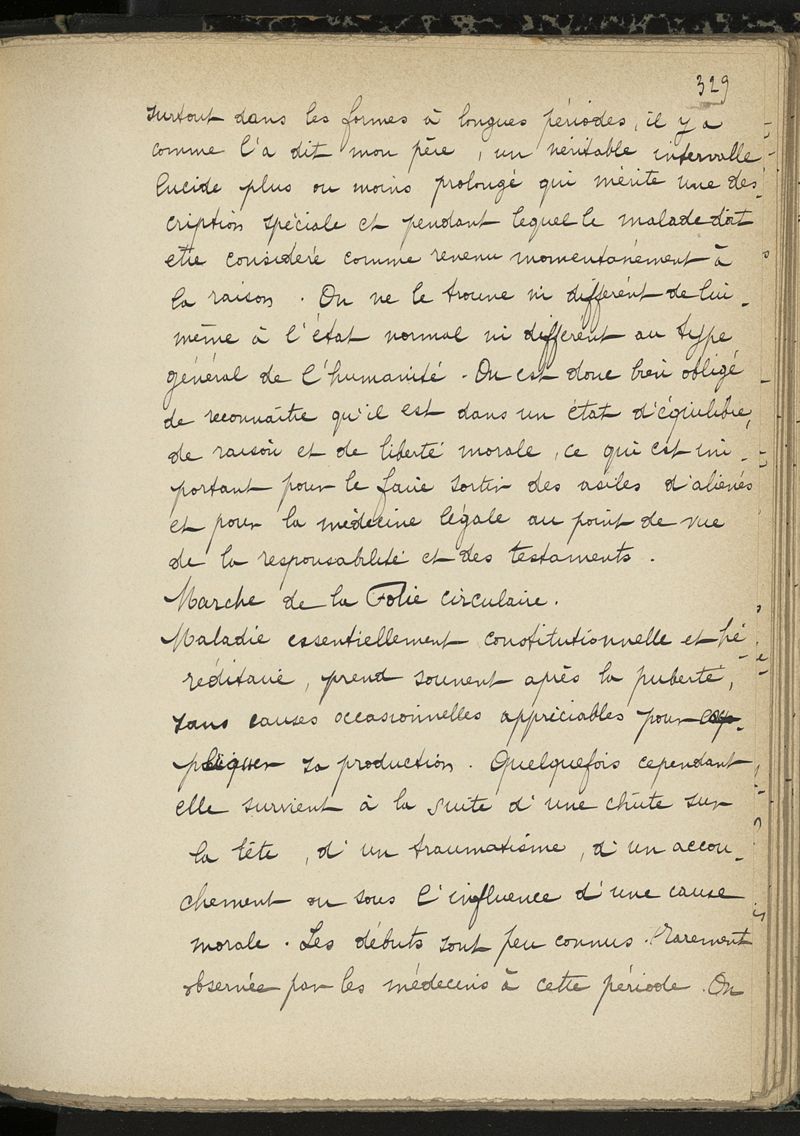 329
surtout dans les formes à longues périodes, il y a
comme l'a dit mon père, un véritable intervalle
lucide plus ou moins prolongé qui mérite une des-
cription spéciale et pendant lequel le malade doit
etre consideré comme revenu momentanément à
la raison. On ne le trouve ni différent de lui-
même à l'état normal ni différent au type
général de l'humanité. On est donc bien obligé
de reconnaître qu'il est dans un état d'équilibre,
de raison et de liberté morale, ce qui est im-
portant pour le faire sortir des asiles d'aliénés
et pour la médecine légale au point de vue
de la responsabilité et des testaments.
Marche de la Folie circulaire.
Maladie essentiellement constitutionnelle et hé-
réditaire, prend souvent après la puberté,
sans causes occasionnelles appréciables pour ex-
pliquer sa production. Quelquefois cependant
elle survient à la suite d'une chûte sur
la tête, d'un traumatisme, d'un accou-
chement ou sous l'influence d'une cause
morale. Les débuts sont peu connus. Rarement
observée par les médecins à cette période. On